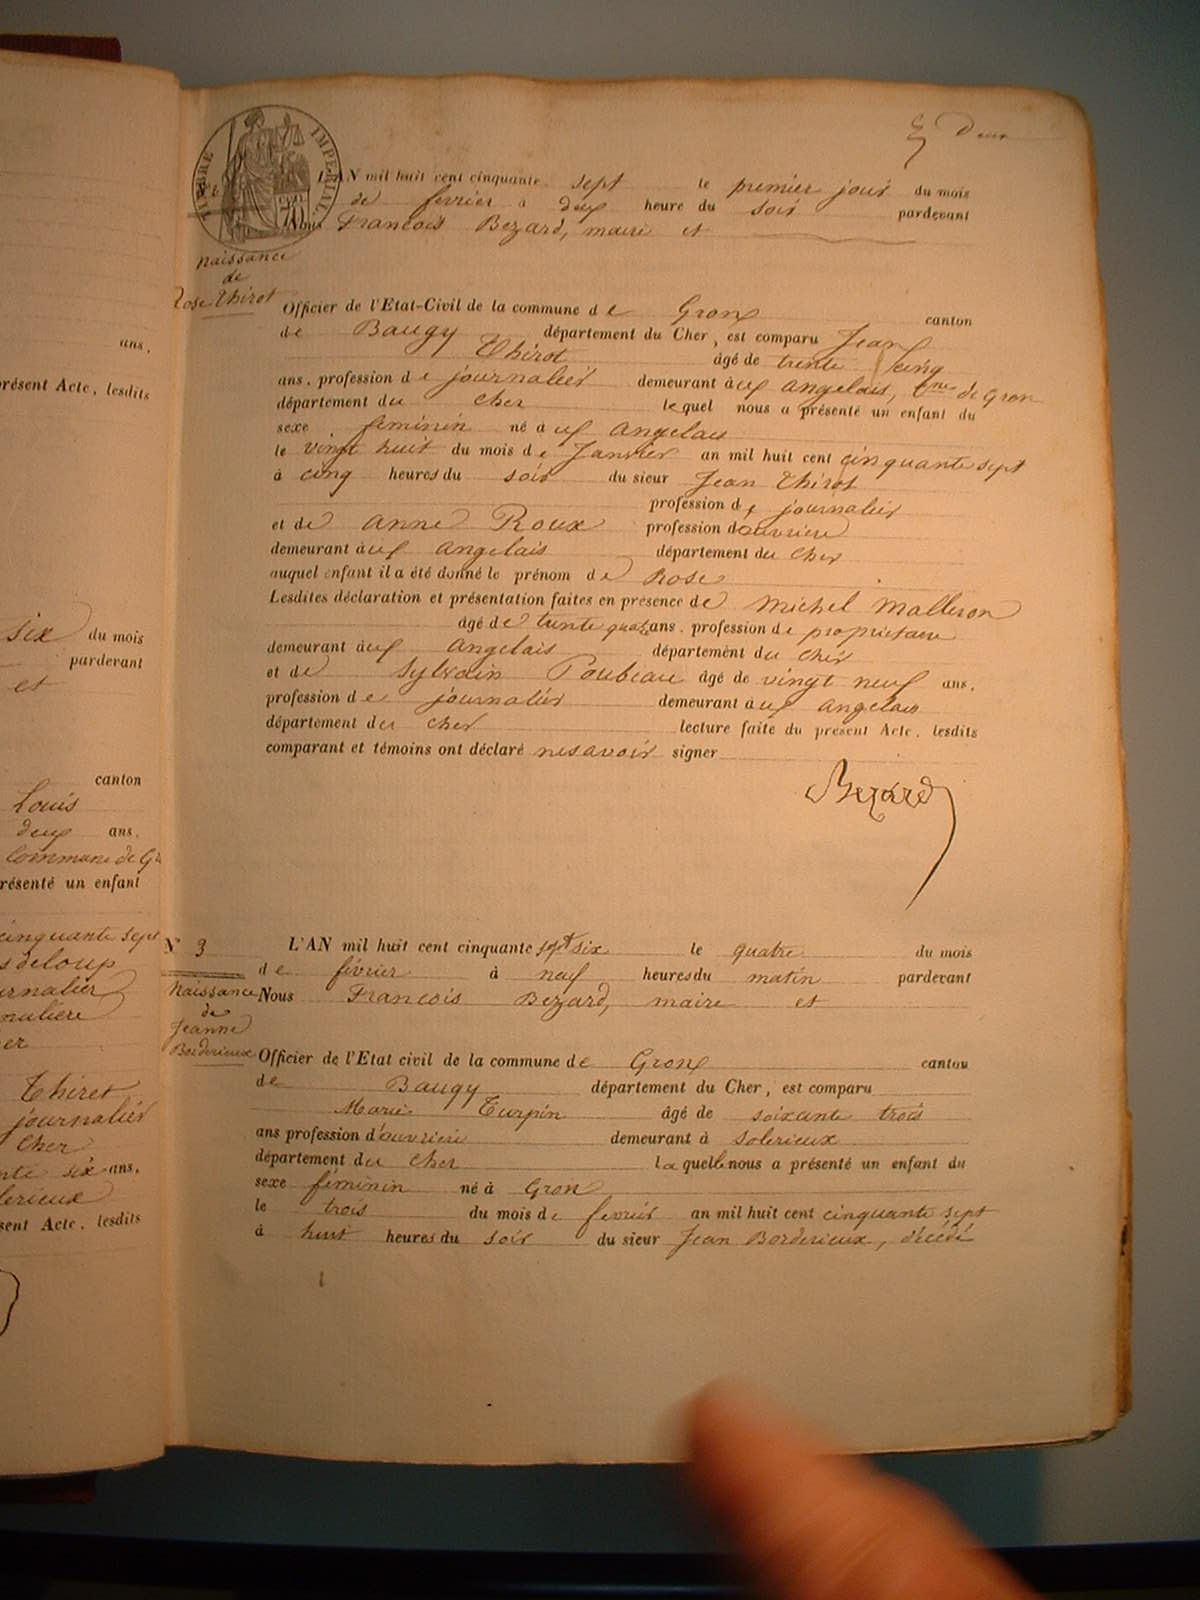 ans,
présent Acte, lesdits
six du mois
pardevant
et
canton
Louis
deux ans,
Commune de
présenté un enfant
cinquante sept
journalier
Thiret
journalier
Cher
six ans,
sent Acte, lesdits
Deux
TIMBRE IMPERIAL
L'AN mil huit cent cinquante sept le premier jour du mois
de fevrier à deux heure du soir pardevant
Nous Francois Bezard, maire et
naissance
de
Rose Thirot
Officier de l'Etat-Civil de la commune de Gron canton
de Baugy département du Cher, est comparu Jean
Thirot âgé de trente cinq
ans, profession de journalier demeurant à ux angelais, Cne de Gron
département du cher lequel nous a présenté un enfant du
sexe feminin né à ux angelais
le vingt huit du mois de Janvier an mil huit cent cinquante sept
à cinq heures du soir du sieur Jean Thirot
profession de journalier
et de anne Roux profession d ouvriere
demeurant à ux angelais département du cher
auquel enfant il a été donné le prénom de Rose
Lesdites déclaration et présentation faites en présence de Michel Malleron
âgé de trente quatre ans, profession de proprietaire
demeurant à ux angelais département du cher
et de Sylvain Poubeau âgé de vingt neuf ans,
profession de journalier demeurant à ux angelais
département du cher lecture faite du présent Acte, lesdits
comparant et témoins ont déclaré ne savoir signer
Bezard
N° 3
L'AN mil huit cent cinquante sept six le quatre du mois
de février à neuf heures du matin pardevant
Naissance
de
Jeanne
Borderieux
Nous Francois Bezard, maire et
Officier de l'Etat civil de la commune de Gron canton
de Baugy département du Cher, est comparu
Marie Turpin âgé de soixante trois
ans profession d'ouvriere demeurant à solerieux
département du cher laquelle nous a présenté un enfant du
sexe féminin né à Gron
le trois du mois de fevrier an mil huit cent cinquante sept
à huit heures du soir du sieur Jean Borderieux, décédé